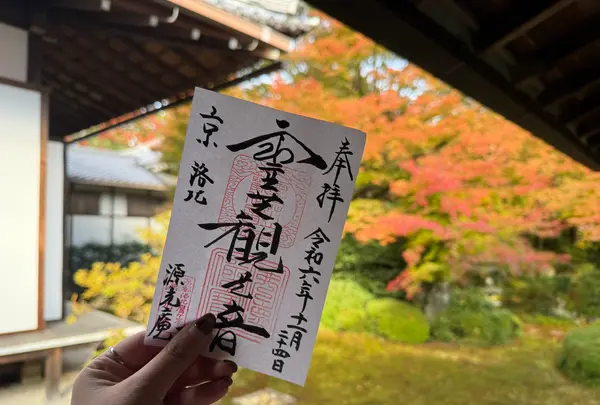 奉拝
令和六年十一月二十四日
霊芝観世音
京洛北
源光庵